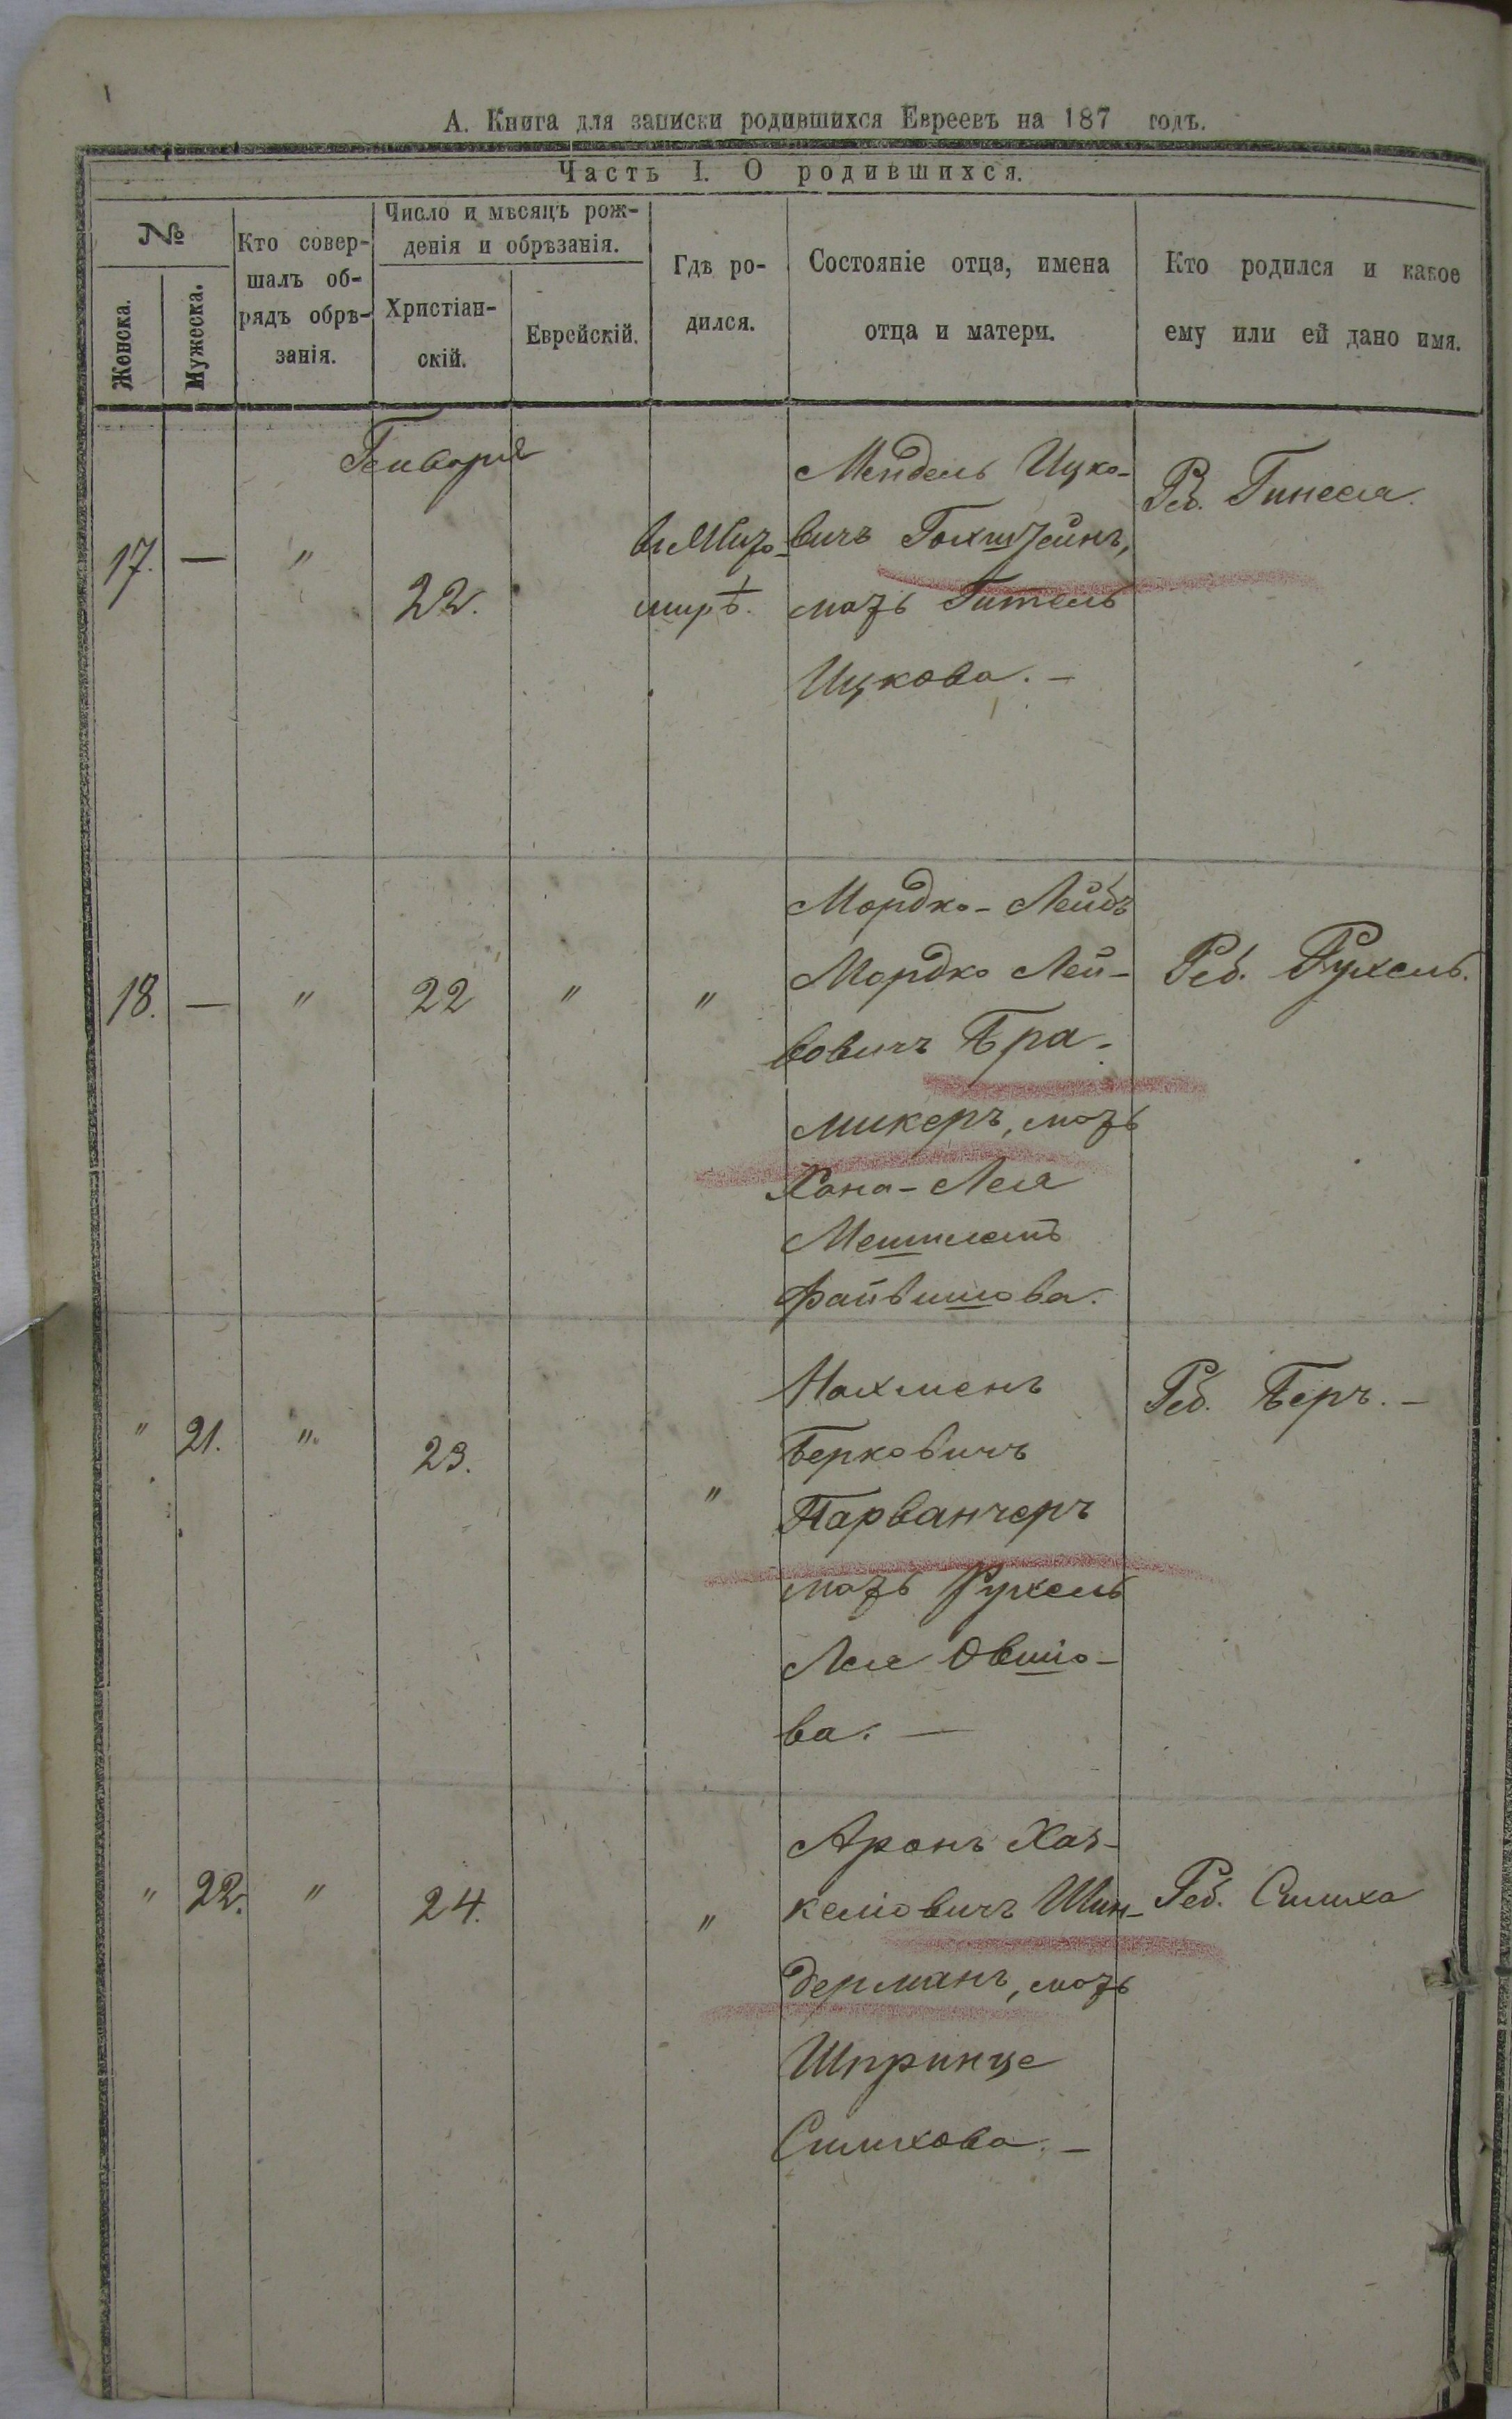 А. Книга для записки родившихся Евреевъ на 187 годъ.
Часть I. О родившихся.
№
Женска.
Мужеска.
Кто совер-
шалъ об-
рядъ обрѣ-
занія.
Число и мѣсяцъ рож-
денія и обрѣзанія.
Христіан-
скій.
Еврейскій.
Гдѣ ро-
дился.
Состояніе отца, имена
отца и матери.
Кто родился и какое
ему или ей дано имя.
Генваря
17. — "
22.
мирѣ.
Мендель Ицко-
вичъ Гохштейнъ,
мать Гитель
Ицкова. —
Реб. Гинеся.
18. — " 22 " "
Мордко-Лейбъ
Мордко Лей-
бовичъ Бра-
микеръ, мать
Хана-Лея
Файвишова.
Реб. Рухель.
" 21. " 23. "
Нахменъ
Берковичъ
Парванчеръ
мать Рухель
Лея Овшіо-
ва. —
Реб. Беръ. —
" 22. " 24. "
Аронъ Хас-
келіовичъ Шин-
дерманъ, мать
Шпринце
Симхова. —
Реб. Симха